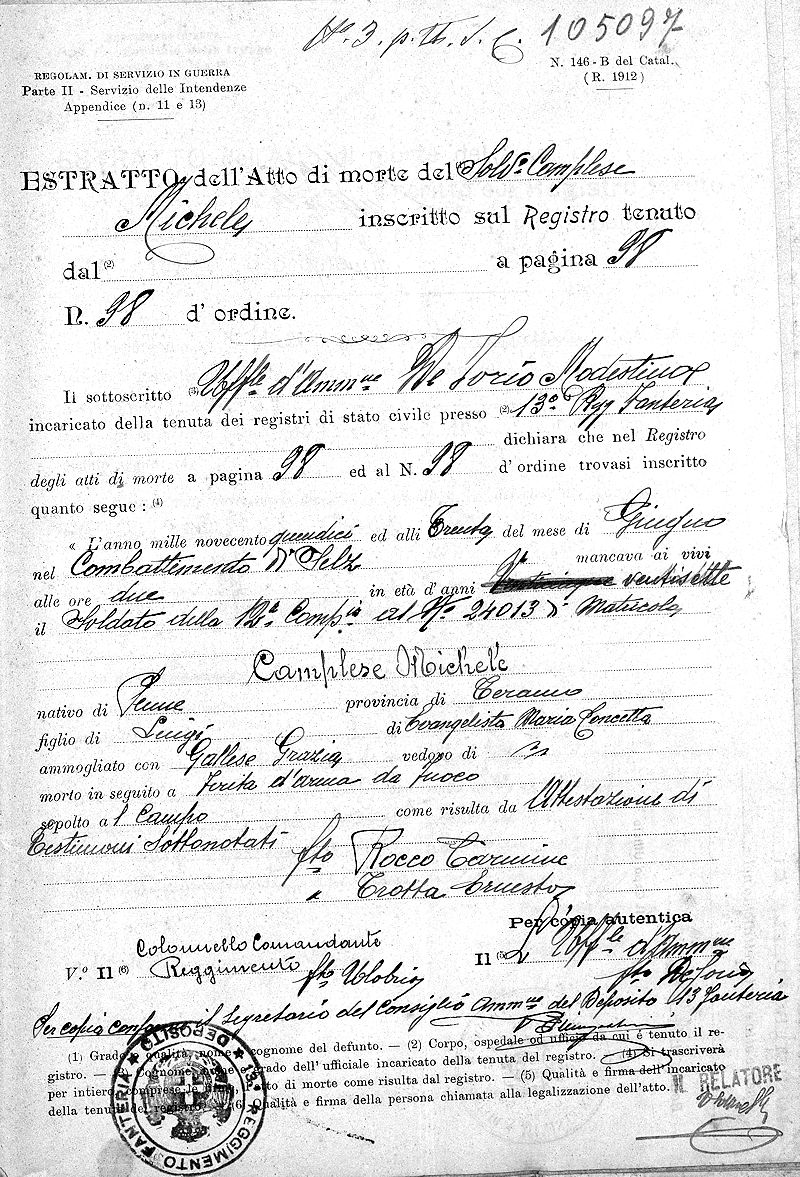 N. 3. p. Th. S. C. 105097
REGOLAM. DI SERVIZIO IN GUERRA
Parte II - Servizio delle Intendenze
Appendice (n. 11 e 13)
N. 146-B del Catal.
(R. 1912)
ESTRATTO dell'Atto di morte del (1) Sold.o Camplese
Michele inscritto sul Registro tenuto
dal (2) a pagina 98
N. 98 d' ordine.
Il sottoscritto (3) Uff.le d'Amm.ne De Iorio Modestino
incaricato della tenuta dei registri di stato civile presso (2) 13º Regg Fanteria
dichiara che nel Registro
degli atti di morte a pagina 98 ed al N. 98 d'ordine trovasi inscritto
quanto segue : (4)
« L'anno mille novecento quindici ed alli Trenta del mese di Giugno
nel Combattimento di Selz mancava ai vivi
alle ore due in età d'anni ventisette
il Soldato della 12ª Comp.ia al No 24013 di Matricola
Camplese Michele
nativo di Penne provincia di Teramo
figlio di Luigi di Evangelista Maria Concetta
ammogliato con Gallese Grazia vedovo di
morto in seguito a Ferita d'arma da fuoco
sepolto al Campo come risulta da Attestazione di
Testimoni Sottonotati fto Rocco Carmine
" Trotta Ernesto
Per copia autentica
V.º Il (6) Colonnello Comandante
Reggimento fto
Il (5) L'Uff.le d'Amm.ne
fto De Iorio
Per copia conforme il Segretario del Consiglio Amm.ne del Deposito 13 Fanteria
(1) Grado, qualità, nome e cognome del defunto. — (2) Corpo, ospedale od ufficio da cui è tenuto il re-
gistro. — (3) Cognome, nome e grado dell'ufficiale incaricato della tenuta del registro. — (4) Si trascriverà
per intiero, comprese le firme, l'atto di morte come risulta dal registro. — (5) Qualità e firma dell'incaricato
della tenuta del registro. — (6) Qualità e firma della persona chiamata alla legalizzazione dell'atto.
IL RELATORE
DEPOSITO 13º REGGIMENTO FANTERIA